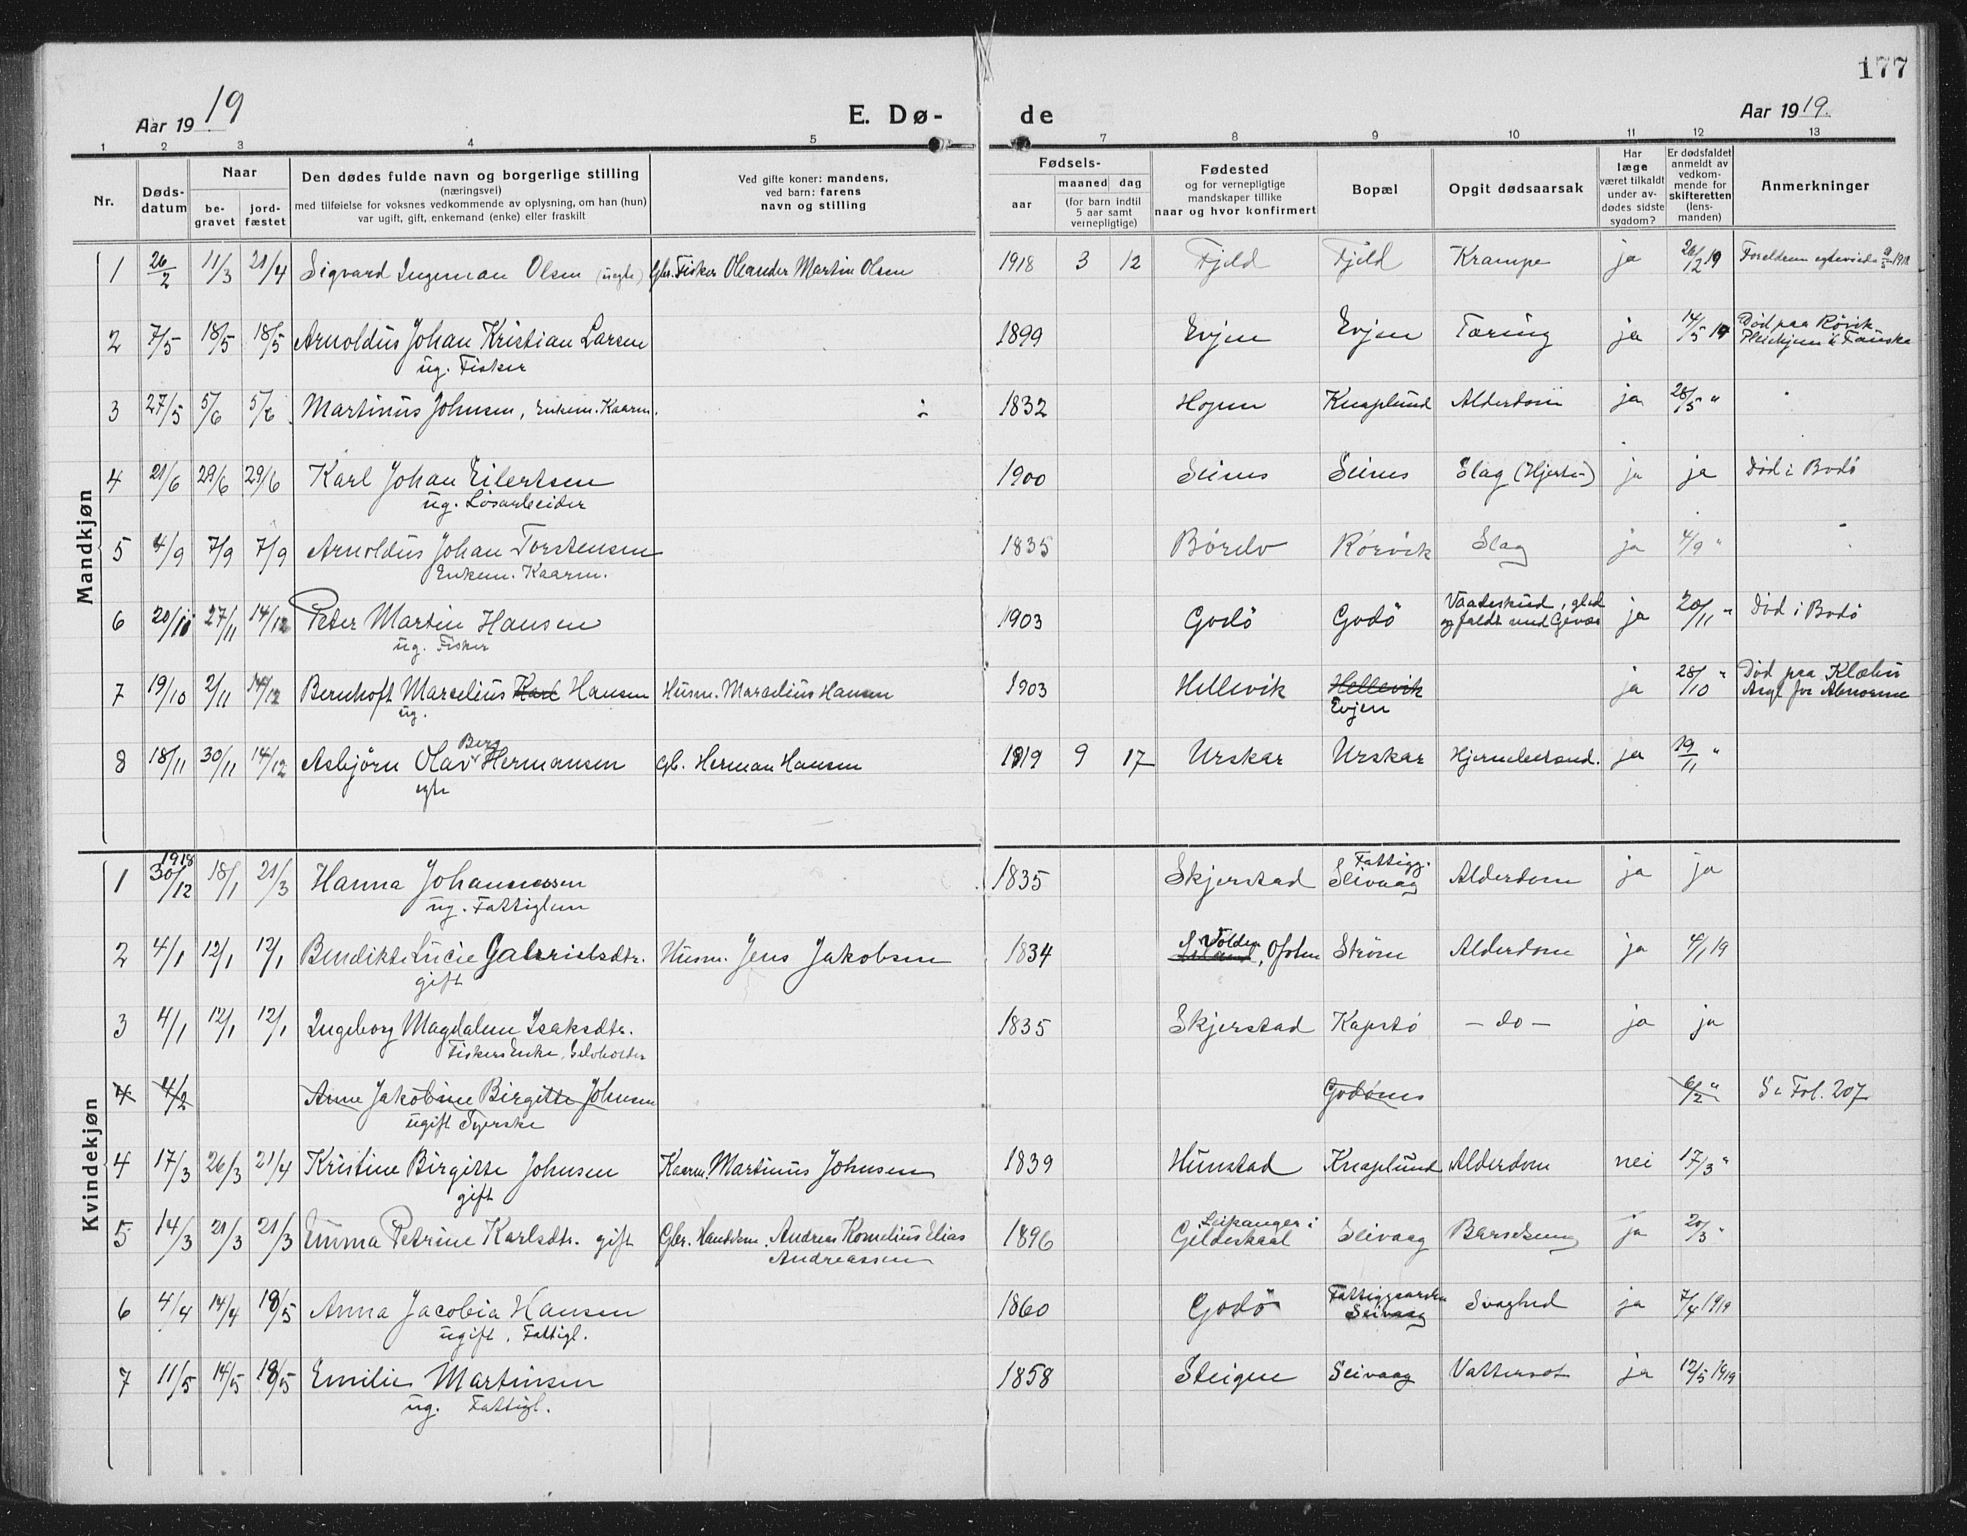 177
Aar 1919
E. Dø-
de
Aar 1919.
1 2 3 4 5 7 8 9 10 11 12 13
Nr.
Døds-
datum
Naar
be-
gravet
jord-
fæstet
Den dødes fulde navn og borgerlige stilling
(næringsvei)
med tilføielse for voksnes vedkommende av oplysning, om han (hun)
var ugift, gift, enkemand (enke) eller fraskilt
Ved gifte koner: mandens,
ved barn: farens
navn og stilling
Fødsels-
aar
maaned dag
(for barn indtil
5 aar samt
vernepligtige)
Fødested
og for vernepligtige
mandskaper tillike
naar og hvor konfirmert
Bopæl
Opgit dødsaarsak
Har
læge
været tilkaldt
under av-
dødes sidste
sygdom?
Er dødsfaldet
anmeldt av
vedkom-
mende for
skifteretten
(lens-
manden)
Anmerkninger
Mandkjøn
1 26/2 11/3 21/4 Sigvard Ingeman Olsen (uegte) Gbr. Fisker Oleander Martin Olsen 1918 3 12 Fjeld Fjeld Krampe ja 26/2 19 Foreldrene egteviede 9/5 1918
2 7/5 18/5 18/5 Arnoldus Johan Kristian Larsen 1899 Evjen Evjen Tæring ja 14/5 19 Død paa Rørvik
ug. Fisker Pleiehjem i Fauske
3 27/5 5/6 5/6 Martinus Johnsen, Enkem. Kaarm. 1832 Hopen Knaplund Alderdom ja 28/5 "
4 21/6 29/6 29/6 Karl Johan Eilertsen 1900 Seines Seines Slag (Hjerte-) ja ja Død i Bodø
ug. Løsarbeider
5 4/9 7/9 7/9 Arnoldus Johan Torstensen 1835 Børelv Rørvik Slag ja 4/9 "
Enkem. Kaarm.
6 20/11 27/11 14/12 Peter Martin Hansen 1903 Godø Godø Vaadeskud, gled ja 20/11 " Død i Bodø
ug. Fisker og faldt med Gevær
7 19/10 2/11 14/12 Bernhoft Marselius Karl Hansen Husm. Marselius Hansen 1903 Hellevik Hellevik ja 28/10 " Død paa Klæbu
ug. Evjen Asyl for Abnorme
8 18/11 30/11 14/12 Asbjørn Olav Berg Hermansen Gb. Herman Hansen 1919 9 17 Urskar Urskar Hjernebetænd. ja 19/11 "
egte
Kvindekjøn
1 1918 30/12 18/1 21/3 Hanna Johannessen 1835 Skjerstad Fattigg. Seivaag Alderdom ja ja
ug. Fattiglem
2 4/1 12/1 12/1 Bendikte Lucie Gabrielsdtr. Husm. Jens Jakobsen 1834 Volden, Ofoten Strøm Alderdom ja 4/1 19
gift
3 4/1 12/1 12/1 Ingeborg Magdalene Isaksdtr. 1835 Skjerstad Kapstø - do - ja ja
Fiskers Enke, Selvholder
4 4/2 Anne Jakobine Birgitte Johnsen Godønes 6/2 " Se Fol. 207
ugift Tyerske
4 17/3 26/3 21/4 Kristine Birgitte Johnsen Kaarm. Martinus Johnsen 1839 Hunstad Knaplund Alderdom nei 17/3 "
gift
5 14/3 21/3 21/3 Emma Petrine Karlsdtr. gift Gbr. Handelsm. Andreas Kornelius Elias 1896 Leipanger i Seivaag Barselseng ja 20/3 "
Andreassen Gildeskaal
6 4/4 14/4 18/5 Anna Jacobia Hansen 1860 Godø Fattiggaarden Svaghed ja 7/4 1919
ugift, Fattigl. Seivaag
7 11/5 14/5 18/5 Emilie Martinsen 1858 Steigen Seivaag Vattersot ja 12/5 1919
ug. Fattigl.